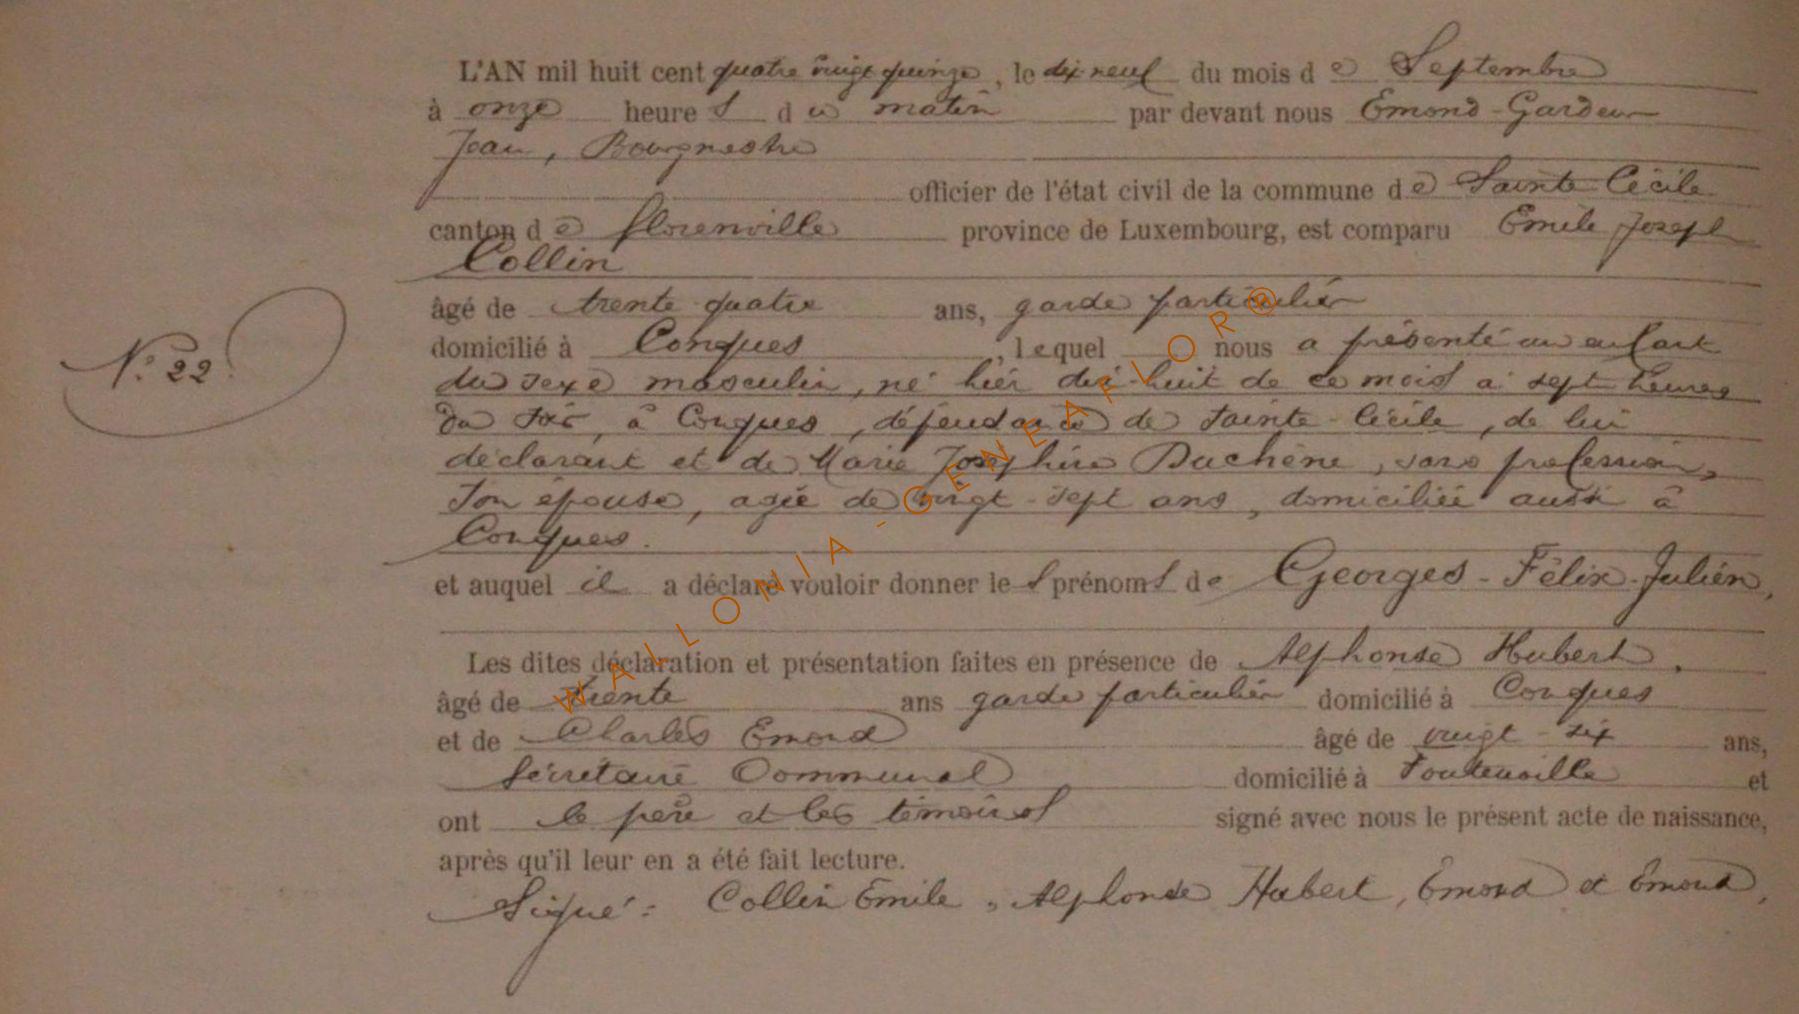 L'AN mil huit cent quatre vingt quinze, le dix-neuf du mois de Septembre
à onze heures du matin par devant nous Emond-Gardeur
Jean, Bourgmestre
officier de l'état civil de la commune de Sainte-Cécile
canton de Florenville province de Luxembourg, est comparu Emile Joseph
Collin
âgé de trente-quatre ans, garde particulier
domicilié à Conques, lequel nous a présenté un enfant
N° 22.
du sexe masculin, né hier dix-huit de ce mois à sept heures
du soir, à Conques, dépendance de Sainte-Cécile, de lui
déclarant et de Marie Joséphine Duchène, sans profession,
son épouse, agée de vingt-sept ans, domiciliée aussi à
Conques.
et auquel il a déclaré vouloir donner les prénoms de Georges-Félix-Julien,
Les dites déclaration et présentation faites en présence de Alphonse Hubert,
âgé de trente ans garde particulier domicilié à Conques
et de Charles Emond âgé de vingt-six ans,
Secrétaire Communal domicilié à Fontenoille et
ont le père et les témoins signé avec nous le présent acte de naissance,
après qu'il leur en a été fait lecture.
Signé: Collin Emile, Alphonse Hubert, Emond et Emond,
WALLONIA-GENEAFLOR®